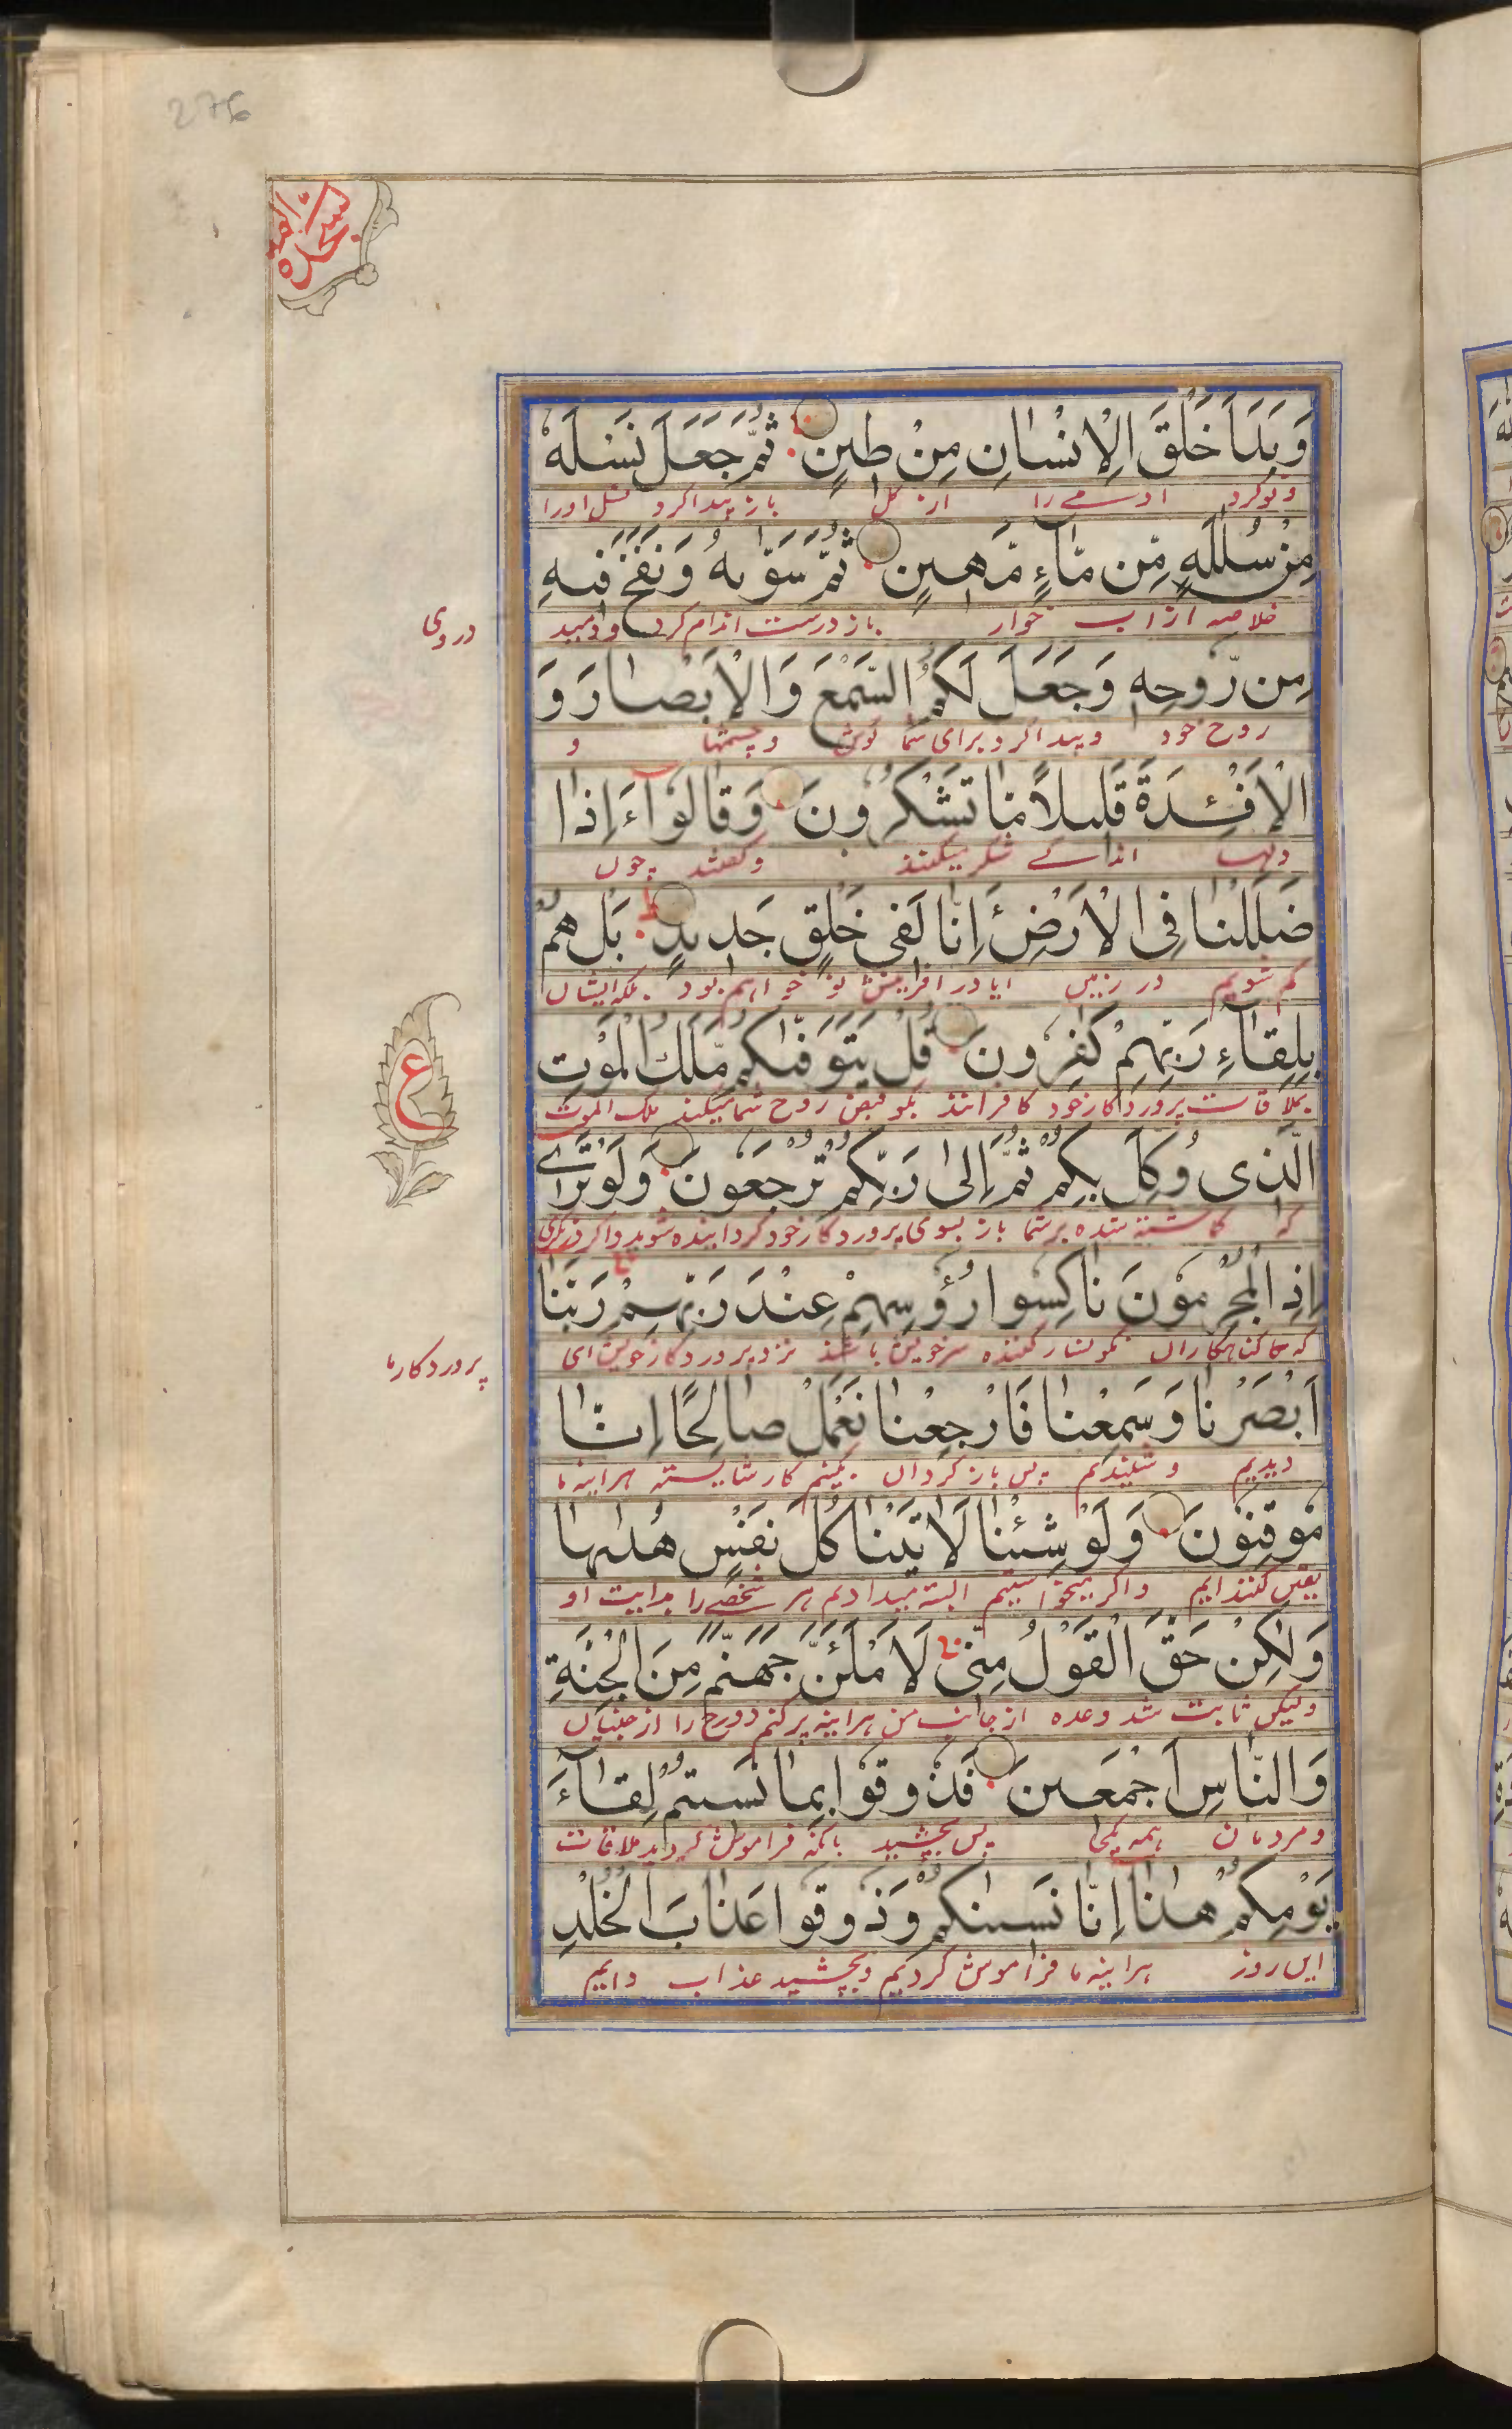 276
السجدة
وَبَدَاَ خَلْقَ الْاِنْسٰانِ مِنْ طينٍ ثُمَّ جَعَلَ نَسْلَهٗ
ونو کرد ادمے را از کل باز پیدا کرد نسل او را
مِنْ سُلٰلَةٍ مِّن مّٰآءٍ مَّهينٍ ثُمَّ سَوّٰىهُ وَنَفَخَ فيهِ
خلاصه از اب خوار باز درست اندام کرد و دمید
در وی
مِن رّوُحِهٖ وَجَعَلَ لَكُمُ السَّمْعَ وَالْاَبْصٰارَ وَ
روح خود و پیدا کرد برای شما کوش و چشمها و
الْاَفْـِٕدَةَ قَليلاً مّٰا تَشْكُرُونَ وَقٰالُوٓاءَ اِذٰا
دلها اندکے شکر میکنند و کفتند چون
ضَلَلْنٰا فِى الْاَرْضِ ءَاِنّٰا لَفى خَلْقٍ جَديدٍ بَلْ هُمْ
کم شویم در زمین ایا در افرینش نو خواهیم بود بلکه ایشان
بِلِقٰآءِ رَبِّهِمْ كٰفِرُونَ قُلْ يَتَوَفّٰىكُمْ مَّلَكُ الْمَوْتِ
بملاقات پروردکار خود کافرانند بکو قبض روح شما میکند ملک الموت
ع
الَّذى وُكِّلَ بِكُمْ ثُمَّ اِلىٰ رَبِّكُمْ تُرْجَعُونَ وَلَوْ تَرٰٓے
که کماشته شده بر شما باز بسوی پروردکار خود کردانیده شوید و اکر
اِذِ الْمُجْرِمُونَ نٰاكِسُوا رُؤُسِهِمْ عِنْدَ رَبِّهِمْ رَبَّنٰا
کناهکاران نکونسار کننده سر خویش باشند نزد پروردکار خویش ای
پروردکار ما
اَبْصَرْنٰا وَسَمِعْنٰا فَارْجِعْنٰا نَعْمَلْ صٰالِحًا اِنّٰا
دیدیم و شنیدیم پس باز کردان بکنیم کار شایسته هراینه ما
مُوقِنُونَ وَلَوْ شِئْنٰا لَاٰتَيْنٰا كُلَّ نَفْسٍ هُدٰىهٰا
یقین کنندایم و اکر میخواستیم البته میدادیم هر شخصے را هدایت او
وَلٰكِنْ حَقَّ الْقَوْلُ مِنّى لَاَمْلَـَٔنَّ جَهَنَّمَ مِنَ الْجِنَّةِ
ولیکن ثابت شد وعده از جانب من هراینه پر کنم دوزخ را از جنیان
وَالنّٰاسِ اَجْمَعينَ فَذُوقُوا بِمٰا نَسيتُمْ لِقٰآءَ
و مردمان همه یکجا پس بچشید بانکه فراموش کردید ملاقات
يَوْمِكُمْ هٰذٰا اِنّٰا نَسينٰكُمْ وَذُوقُوا عَذٰابَ الْخُلْدِ
این روز هراینه ما فراموش کردیم و بچشید عذاب دایم